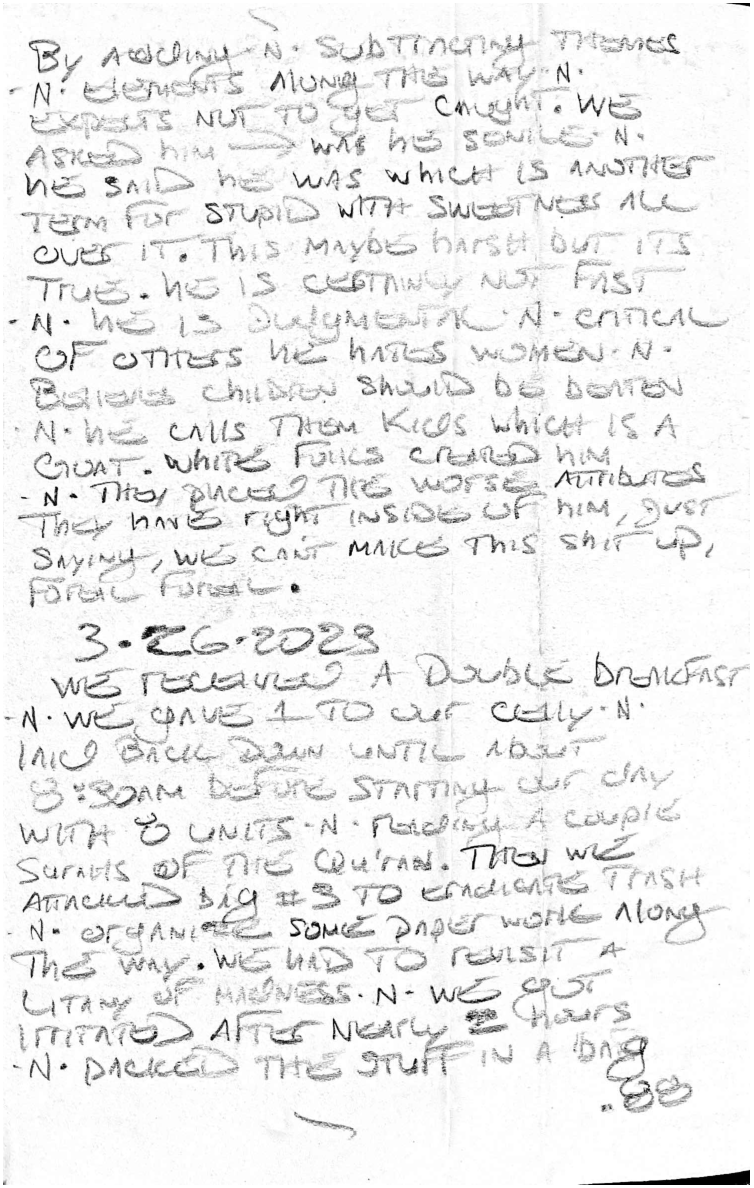 By ADDING ·N· SUBTRACTING THEMES
·N· ELEMENTS ALONG THE WAY ·N·
EXPECTS NOT TO GET CAUGHT. WE
ASKED HIM → WAS HE SENILE ·N·
HE SAID HE WAS WHICH IS ANOTHER
TERM FOR STUPID WITH SWEETNESS ALL
OVER IT. THIS MAYBE HARSH BUT ITS
TRUE. HE IS CERTAINLY NOT FAST
·N· HE IS JUDGMENTAL ·N· CRITICAL
OF OTHERS HE HATES WOMEN ·N·
BELIEVES CHILDREN SHOULD BE BEATEN
·N· HE CALLS THEM KIDS WHICH IS A
GOAT. WHITE FOLKS CREATED HIM
·N· THEY PLACED THE WORSE ATTRIBUTES
THEY HAVE RIGHT INSIDE OF HIM, JUST
SAYING, WE CAN'T MAKE THIS SHIT UP,
FOREAL FOREAL.
3·26·2023
WE RECEIVED A DOUBLE BREAKFAST
·N· WE GAVE 1 TO OUR CELLY ·N·
LAID BACK DOWN UNTIL ABOUT
8:30AM BEFORE STARTING OUR DAY
WITH 8 UNITS ·N· READING A COUPLE
SURAHS OF THE QU'RAN. THEN WE
ATTACKED BIG #3 TO ERADICATE TRASH
·N· ORGANIZE SOME PAPER WORK ALONG
THE WAY. WE HAD TO REVISIT A
LITANY OF MADNESS ·N· WE GOT
IRRITATED AFTER NEARLY 2 HOURS
·N· PACKED THE STUFF IN A BAG
.88